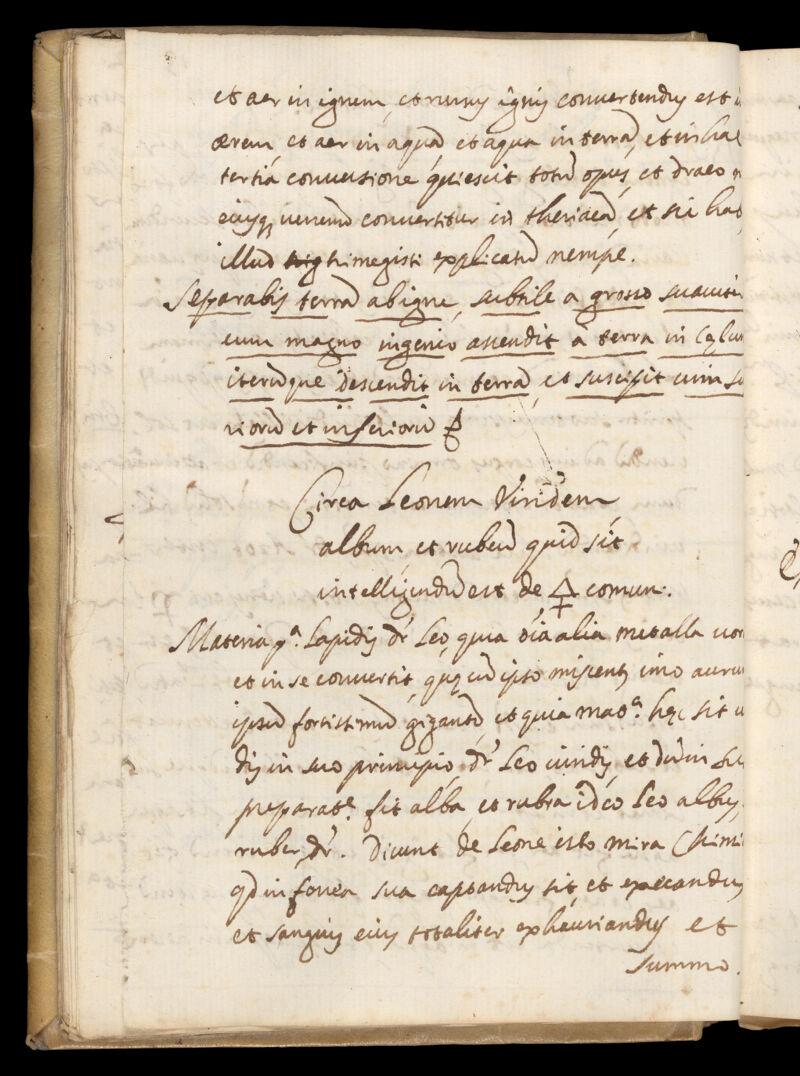 et aer in ignem, et rursus ignis convertendus est
ærem, et aer in aquã, et aqua in terrã, et in hac
tertiã conversione quiescit totũ opus, et draco
eiusq; venenũ convertitur in theriacã, et sic
illud trimegisti explicatũ nempe.
Separabis terrã ab igne, subtile a grosso suaviter
cum magno ingenio ascendit a terra in Cęlum
iterũque descendit in terrã, et suscipit vim su
riorũ et inferiorũ
Circa Leonem Viridem
album, et rubeũ quid sit
intelligendũ est de 🜍 comun:
Materia pª. Lapidis dr̃ Leo, quia oĩa alia metalla vor
et in se convertit, quę cũ ipso miscentr, imo aurum
ipsũ fortissimũ gigantũ, et quia matª. hęc sit
dis in suo principio, dr̃ Leo viridis, et dũ in su
preparatᵉ. fit alba, et rubra ĩdeo Leo albus,
ruber dr̃. Dicunt de Leone isto mira Chimi
qd in fovea sua captandus sit, et exęcandus
et sanguis eius totaliter exhauriandus et
summo.